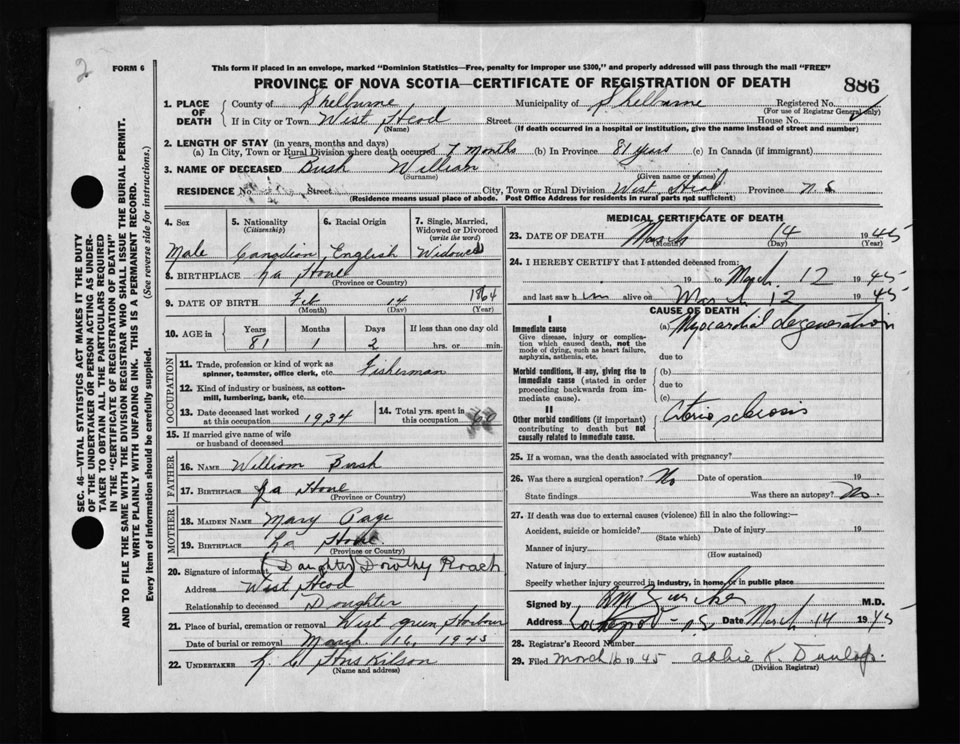 2
FORM 6
This form if placed in an envelope, marked "Dominion Statistics—Free, penalty for improper use $300," and properly addressed will pass through the mail "FREE"
PROVINCE OF NOVA SCOTIA—CERTIFICATE OF REGISTRATION OF DEATH
886
SEC. 46—VITAL STATISTICS ACT MAKES IT THE DUTY
OF THE UNDERTAKER OR PERSON ACTING AS UNDER-
TAKER TO OBTAIN ALL THE PARTICULARS REQUIRED
IN THE "CERTIFICATE OF REGISTRATION OF DEATH"
AND TO FILE THE SAME WITH THE DIVISION REGISTRAR WHO SHALL ISSUE THE BURIAL PERMIT.
WRITE PLAINLY WITH UNFADING INK. THIS IS A PERMANENT RECORD.
Every item of information should be carefully supplied. (See reverse side for instructions.)
1. PLACE OF DEATH County of Shelburne Municipality of Shelburne Registered No.
(For use of Registrar General only)
If in City or Town West Head Street House No.
(Name) (If death occurred in a hospital or institution, give the name instead of street and number)
2. LENGTH OF STAY (in years, months and days)
(a) In City, Town or Rural Division where death occurred 7 Months (b) In Province 81 years (c) In Canada (if immigrant)
3. NAME OF DECEASED Bush William
(Surname) (Given or names)
RESIDENCE No. Street City, Town or Rural Division West Head Province N.S.
(Residence means usual place of abode. Post Office Address for residents in rural parts not sufficient)
4. Sex 5. Nationality (Citizenship) 6. Racial Origin 7. Single, Married, Widowed or Divorced (write the word)
Male Canadian English Widowed
8. BIRTHPLACE
(Province or Country)
9. DATE OF BIRTH Feb 14 1864
(Month) (Day) (Year)
10. AGE in Years Months Days If less than one day old
81 1 2 hrs. or min.
OCCUPATION
11. Trade, profession or kind of work as spinner, teamster, office clerk, etc. Fisherman
12. Kind of industry or business, as cotton-mill, lumbering, bank, etc.
13. Date deceased last worked at this occupation 1934 14. Total yrs. spent in this occupation 60
15. If married give name of wife or husband of deceased
FATHER
16. NAME William Bush
17. BIRTHPLACE
(Province or Country)
MOTHER
18. MAIDEN NAME Mary Page
19. BIRTHPLACE
(Province or Country)
20. Signature of informant (Daughter) Dorothy Roach
Address West Head
Relationship to deceased Daughter
21. Place of burial, cremation or removal West green Harbour
Date of burial or removal March 16, 1945
22. UNDERTAKER
(Name and address)
MEDICAL CERTIFICATE OF DEATH
23. DATE OF DEATH March 14 1945
(Month) (Day) (Year)
24. I HEREBY CERTIFY that I attended deceased from:
19 to March 12 1945
and last saw him alive on March 12 1945
CAUSE OF DEATH
I
Immediate cause (a) Myocardial degeneration
Give disease, injury or complication which caused death, not the mode of dying, such as heart failure, asphyxia, asthenia, etc. due to
Morbid conditions, if any, giving rise to immediate cause (stated in order proceeding backwards from immediate cause). (b)
due to
(c)
II
Other morbid conditions (if important) contributing to death but not causally related to immediate cause.
25. If a woman, was the death associated with pregnancy?
26. Was there a surgical operation? No Date of operation 19
State findings Was there an autopsy? No.
27. If death was due to external causes (violence) fill in also the following:—
Accident, suicide or homicide? Date of injury 19
(State which)
Manner of injury
(How sustained)
Nature of injury
Specify whether injury occurred in industry, in home, or in public place
Signed by M.D.
Address Lockeport N.S. Date March 14 1945
28. Registrar's Record Number
29. Filed March 16 1945 Abbie K. Dunlop.
(Division Registrar)